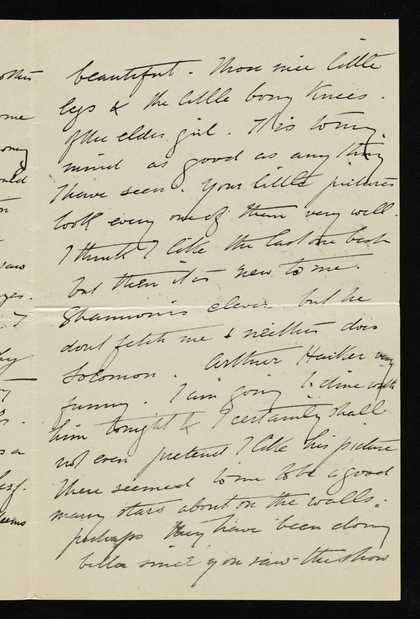 beautiful. Those nice little
legs & the little bony knees.
of the elder girl. It is to my
mind as good as any thing
I have seen. Your little pictures
look every one of them very well.
I think I like the last one best
but then it is new to me.
Shannon is clever but he
dont fetch me & neither does
Solomon. Arthur Hacker very
funny. I am going to dine with
him tonight & I certainly shall
not even pretend I like his picture
There seemed to me to be a good
many stars about on the walls.
perhaps they have been doing
better since you saw the show